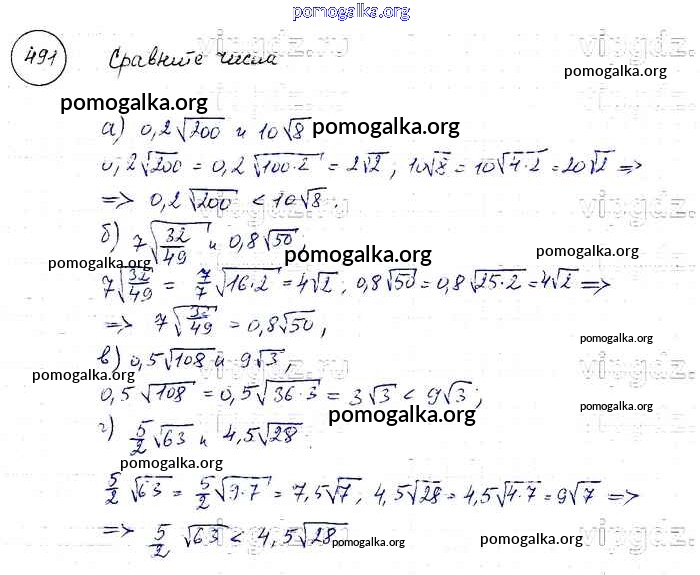 pomogalka.org
491 Сравните числа
vipgdz.ru
pomogalka.org
pomogalka.org
а) 0,2√200 и 10√8
pomogalka.org
0,2√200 = 0,2√(100·2) = 2√2, 10√8 = 10√(4·2) = 20√2 =>
pomogalka.org
=> 0,2√200 < 10√8.
vipgdz.
б) 7√(32/49) и 0,8√50;
pomogalka.org
pomogalka.org
pomogalka.org
7√(32/49) = 7/7√(16·2) = 4√2, 0,8√50 = 0,8√(25·2) = 4√2 =>
=> 7√(32/49) = 0,8√50,
pomogalka.org
в) 0,5√108 и 9√3,
vipgdz.ru
pomogalka.org
pomogalka.org
0,5√108 = 0,5√(36·3) = 3√3 < 9√3;
pomogalka.org
pomogalka.org
г) 5/2√63 и 4,5√28.
pomogalka.org
5/2√63 = 5/2√(9·7) = 7,5√7, 4,5√28 = 4,5√(4·7) = 9√7 =>
=> 5/2√63 < 4,5√28
vipgdz.ru
pomogalka.org
pomogalka.org